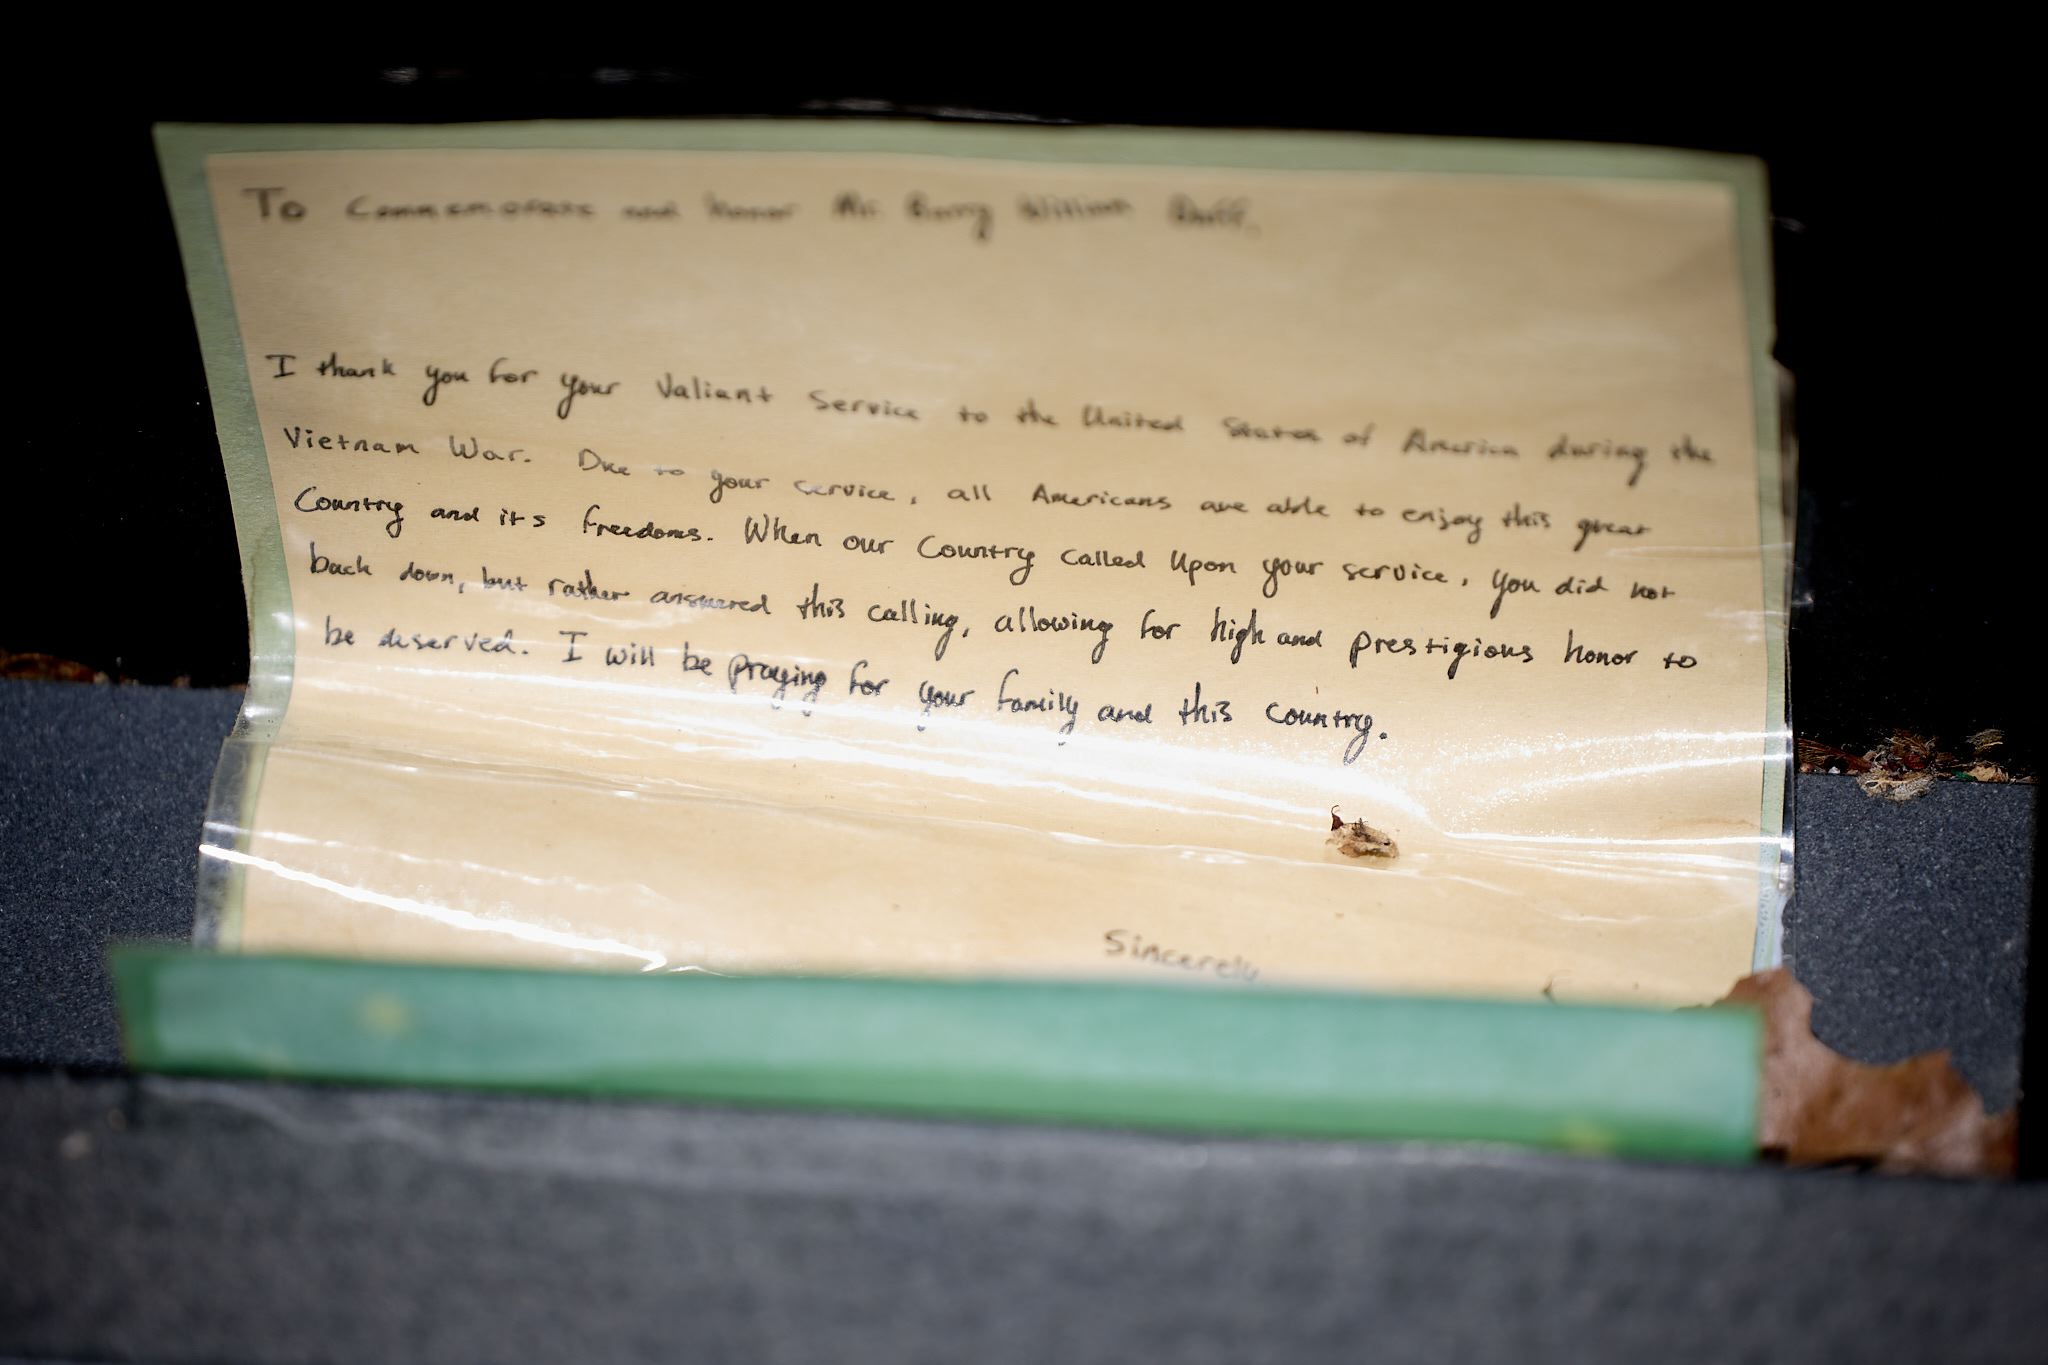 To Commemorate and honor Mr. Barry William
I thank you for your Valiant Service to the United States of America during the
Vietnam War. Due to your service, all Americans are able to enjoy this great
Country and its freedoms. When our Country called upon your service, you did not
back down, but rather answered this calling, allowing for high and prestigious honor to
be deserved. I will be praying for your family and this country.
Sincerely